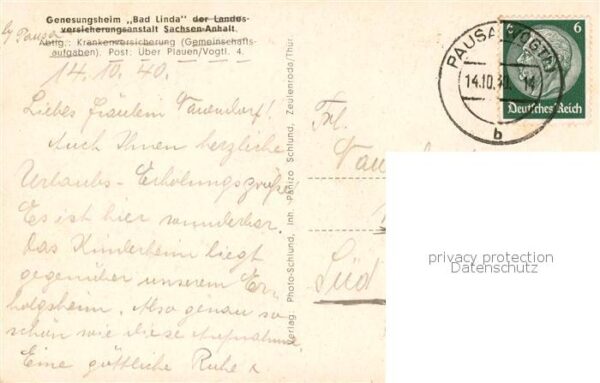 Genesungsheim „Bad Linda" der Landes-
versicherungsanstalt Sachsen-Anhalt
Abtlg.: Krankenversicherung (Gemeinschafts-
aufgaben). Post: Über Plauen/Vogtl. 4.
14.10.40.
Liebes Fräulein
Auch Ihnen herzliche
Urlaubs-Erholungsgrüße!
Es ist hier wunderbar.
Das Kinderheim liegt
gegenüber unserem Er-
holgsheim. Also genau so
schön wie diese Aufnahme.
Eine göttliche Ruhe
Verlag Photo-Schlund, Inh. Panizo Schlund, Zeulenroda/Thür.
PAUSA (VOGTL)
14.10.
b
6
Deutsches Reich
Frl.
Süd
privacy protection
Datenschutz